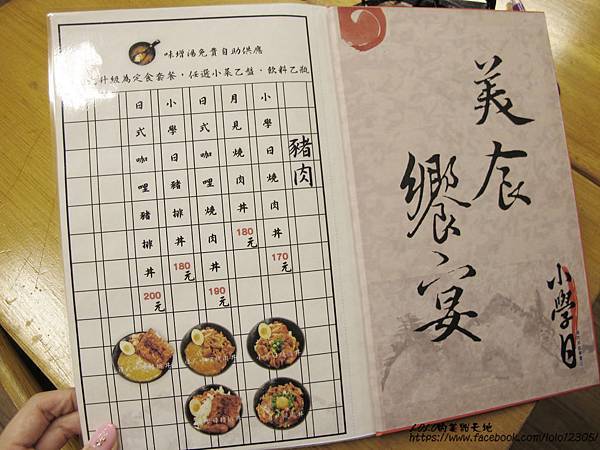 味增湯免費自助供應
升級為定食套餐，任選小菜乙盤．飲料乙瓶
豬肉
小學日燒肉丼 170元
月見燒肉丼 180元
日式咖哩燒肉丼 190元
小學日豬排丼 180元
日式咖哩豬排丼 200元
美食
饗宴
小學日
https://www.facebook.com/lolo12305/